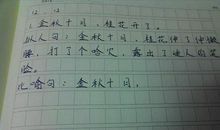 12 . 12
1. 金秋十月，桂花开了。
以人句：金秋十月，桂花伸了伸懒
腰，打了个哈欠，露出了迷人的笑
脸。
比喻句：金秋十月，